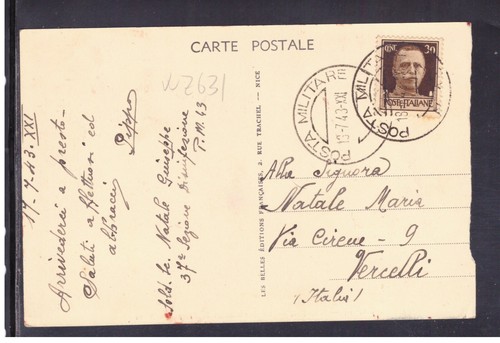 CARTE POSTALE
17-7-43.XXI
Arrivederci a presto-
Saluti affettuosi ed
abbracci
Peppe
Sold. sc. Natale Giuseppe
37ª Sezione Disinfezione
P.M. 63
LES BELLES ÉDITIONS FRANÇAISES, 2. RUE TRACHEL — NICE
POSTA MILITARE
18-7.43-XXI
CENT. 30
POSTE ITALIANE
POSTA MILITARE
18
Alla Signora
Natale Maria
Via Cirene - 9
Vercelli
(Italia)